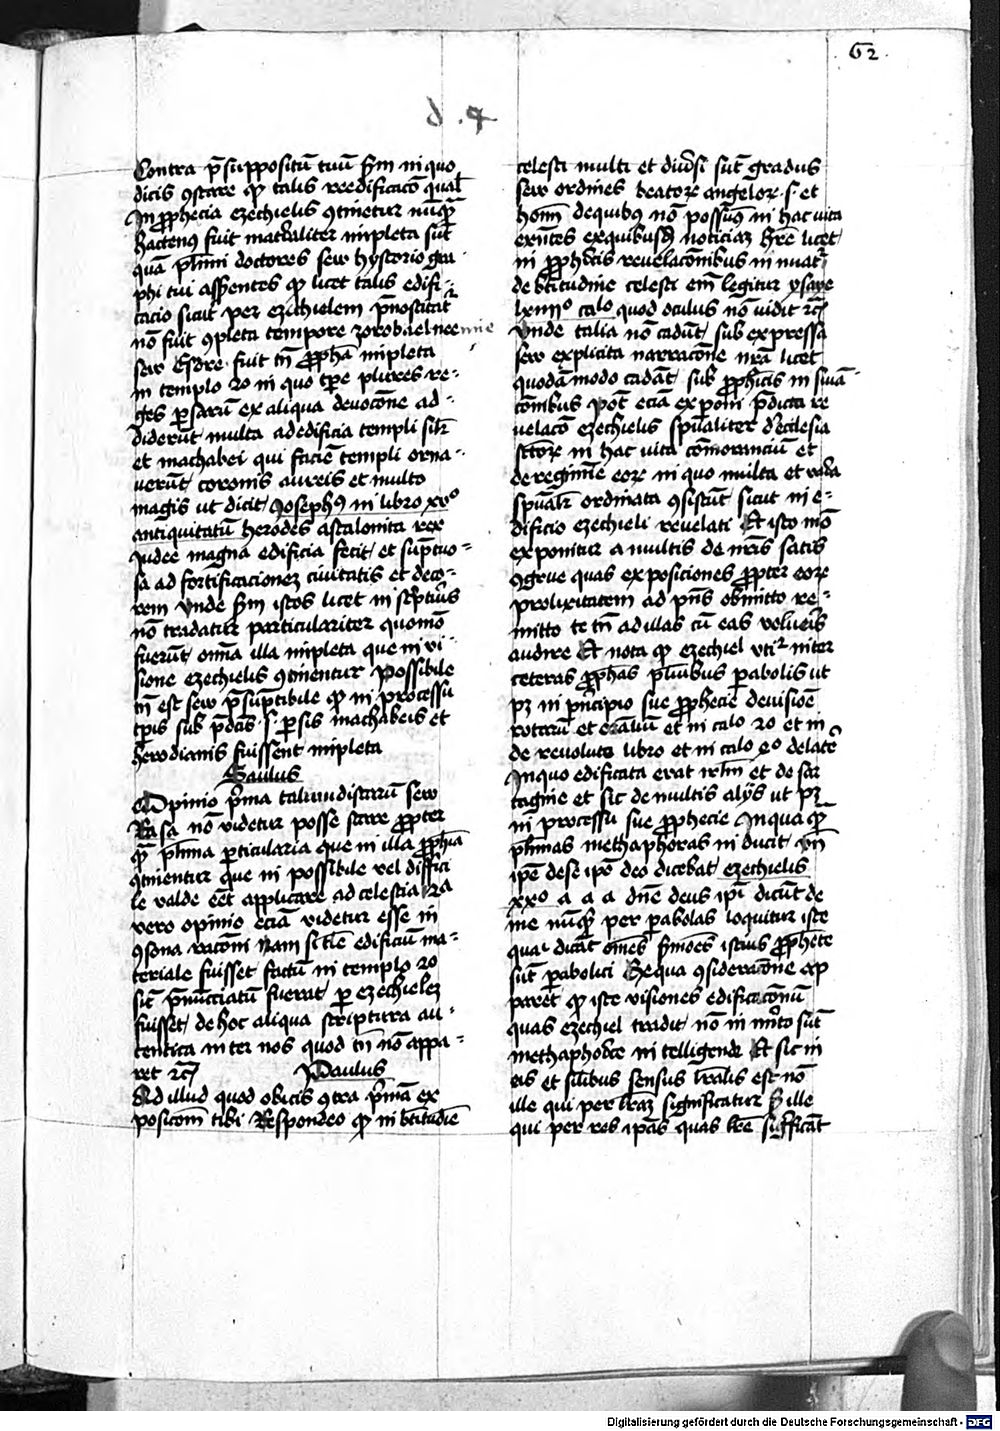 62
d. 4
Contra p̄suppositū tuū s̄m in quo
dicis ꝯstare ꝙ talis reedificacō qual̄
In ꝓphecia ezechielis ꝯtinetur nūq̄
hactenus fuit mat̄ialiter impleta sūt
quā pl̄imi doctores seu hystoriogra
phi tui asserentes ꝙ licet talis edifi-
cacio sicut per ezechielem p̄nosticat̄
nō fuit ꝯpleta tempore zorobabel neemie
seu Esdre fuit tn̄ ꝓpha impleta
in templo 2o in quo tp̄e plures re-
ges persarū ex aliqua deuocōne ad-
diderūt multa ad edificia templi sil̄r
et machabei qui faciē templi orna-
uerūt coronis aureis et multo
magis ut dicit Josephꝰ in libro xvº
antiquitatū herodes ascalonita rex
Judee magna edificia fecit et sūptuo-
sa ad fortificacionez ciuitatis et deco-
rem Vnde s̄m istos licet in sc̄pturis
nō tradatur particulariter quomō
fuerūt om̄ia illa impleta que in vi-
sione ezechielis ꝯtinentur Possibile
tn̄ est seu p̄sūptibile ꝙ in processu
tp̄is sub p̄dc̄is .s. persis machabeis et
herodianis fuissent impleta
Saulus
Opinio p̄ma talmudistarū seu
Ra sa nō videtur posse stare ꝓpter
qꝫ pl̄ima particularia que in illa ꝓphīa
ꝯtinentur que impossibile vel diffici
le valde eēt applicare ad celestia 2a
vero opinio eciā videtur esse in
ꝯsona racōni Nam si tl̄e edificiū ma-
teriale fuisset factū in templo 2o
sic̄ p̄nūcciatū fuerat per ezechielez
fuisset de hoc aliqua scriptura au-
tentica inter nos quod tn̄ nō appa-
ret ꝛc̄
Paulus
Ad illud quod obicis ꝯtra p̄mā ex
posicōm tibi Respondeo ꝙ in btitudīe
celesti multi et diūsi sūt gradus
seu ordines beatoꝝ angeloꝝ .s. et
hoīm de quibꝰ nō possumꝰ in hac vita
exn̄tes ex quibusꝫ noticiaz hr̄e licet
in ꝓphēcis reuelacōnibus
de btitudine celesti em̄ legitur ysaye
lxiiiiº calo quod oculus nō vidit ꝛc̄
Vnde talia nō cadūt sub expressa
seu explicita narracōne nr̄a licet
quodāmodo cadāt sub ꝓphīcis
Pot̄ eciā exponi p̄dicta re
uelacō ezechielis spūaliter de ecclesia
sc̄toꝝ in hac vita cōmoranciū et
de regimīe eoꝝ in quo multa et
spūalr̄ ordinata ꝯsistūt sicut in e-
dificio ezechieli reuelati Et isto mō
exponitur a multis de nr̄is satis
ꝯgrue quas exposiciones ꝓpter eoꝝ
prolixitatem ad p̄ns obmitto re-
mitto te tn̄ ad illas cū eas volueris
audire Et nota ꝙ ezechiel vtiꝛ inter
ceteras ꝓphās pl̄ibus parabolis ut
pꝫ in principio sue ꝓphecie de visiōe
rotarū et et in calo 2o et in
de reuoluto libro et in calo
In quo edificata erat irl̄m et de sar
tagine et sic de multis alijs ut pꝫ
in processu sue ꝓphecie In qua ꝙ
pl̄imas methaphoras inducit vn̄
ip̄e de se ip̄o deo dicebat ezechielis
xxº a a a dn̄e deus ip̄i dicūt de
me nūqꝫ per pabolas loquitur iste
quai dicāt om̄es s̄moēs istius ꝓphete
sūt parabolici Ex qua ꝯsideracōne ap
paret ꝙ iste visiones edificacōnū
quas ezechiel tradit nō in m̄ito sūt
methaphorice intelligende Et sic in
eis et sil̄ibus sensus lr̄alis est nō
ille qui per lr̄az significatur s̄ ille
qui per res ip̄as quas lr̄e siḡficāt
Digitalisierung gefördert durch die Deutsche Forschungsgemeinschaft - DFG